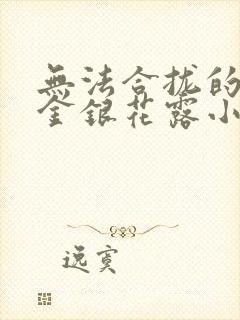 無法合拢的
金銀花露小
逸寞